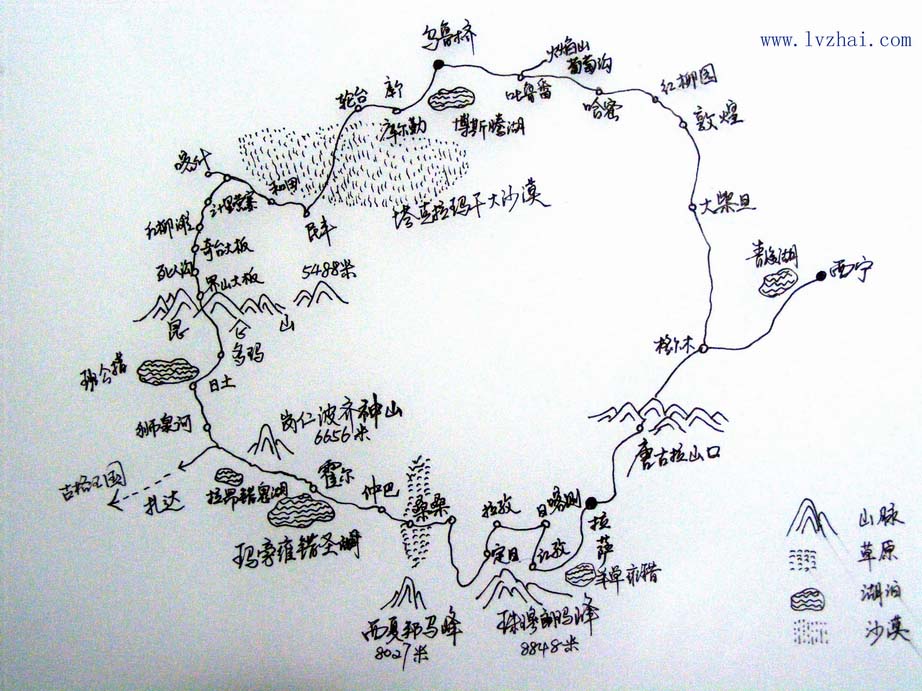 www.lvzhai.com
乌鲁木齐
火焰山
葡萄沟
吐鲁番
哈密
红柳园
敦煌
轮台
库尔勒
博斯腾湖
喀什
和田
民丰
塔克拉玛干大沙漠
大柴旦
红柳滩
奇台大板
死人沟
界山大板
5488米
昆仑山
青海湖
西宁
格尔木
多玛
班公措
日土
狮泉河
岗仁波齐神山
6656米
唐古拉山口
古格王国
扎达
拉昂错鬼湖
霍尔
仲巴
玛旁雍错圣湖
桑桑
拉孜
日喀则
定日
江孜
拉萨
羊卓雍措
西夏邦马峰
8027米
珠穆朗玛峰
8848米
山脉
草原
湖泊
沙漠